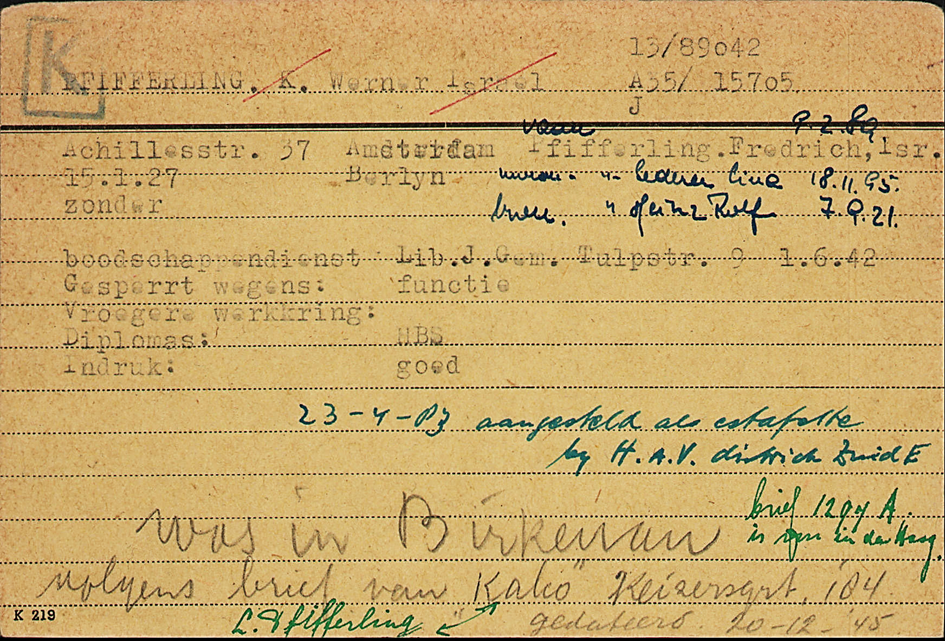 K
13/89o42
PFIFFERLING. K. Werner Israel A35/ 157o5
J
vader 9.2.89
Achillesstr. 37 Amsterdam Pfifferling.Fredrich,Isr.
15.1.27 Berlyn moeder " Lederer Lina 18.11.95.
zonder broer. " Heinz Rolf 7.9.21.
boodschappendienst Lib.J.Gem. Tulpstr. 9 1.6.42
Gesperrt wegens: functie
Vroegere werkkring:
Diplomas: HBS
Indruk: goed
23-4-43 aangesteld als estafette
by H.A.V. district Zuid E
brief 1294 A.
Was in Birkenau is in den Haag.
volgens brief van "Kalio" Keizersgrt. 184
K 219 L. Pfifferling gedateerd 20-12-'45